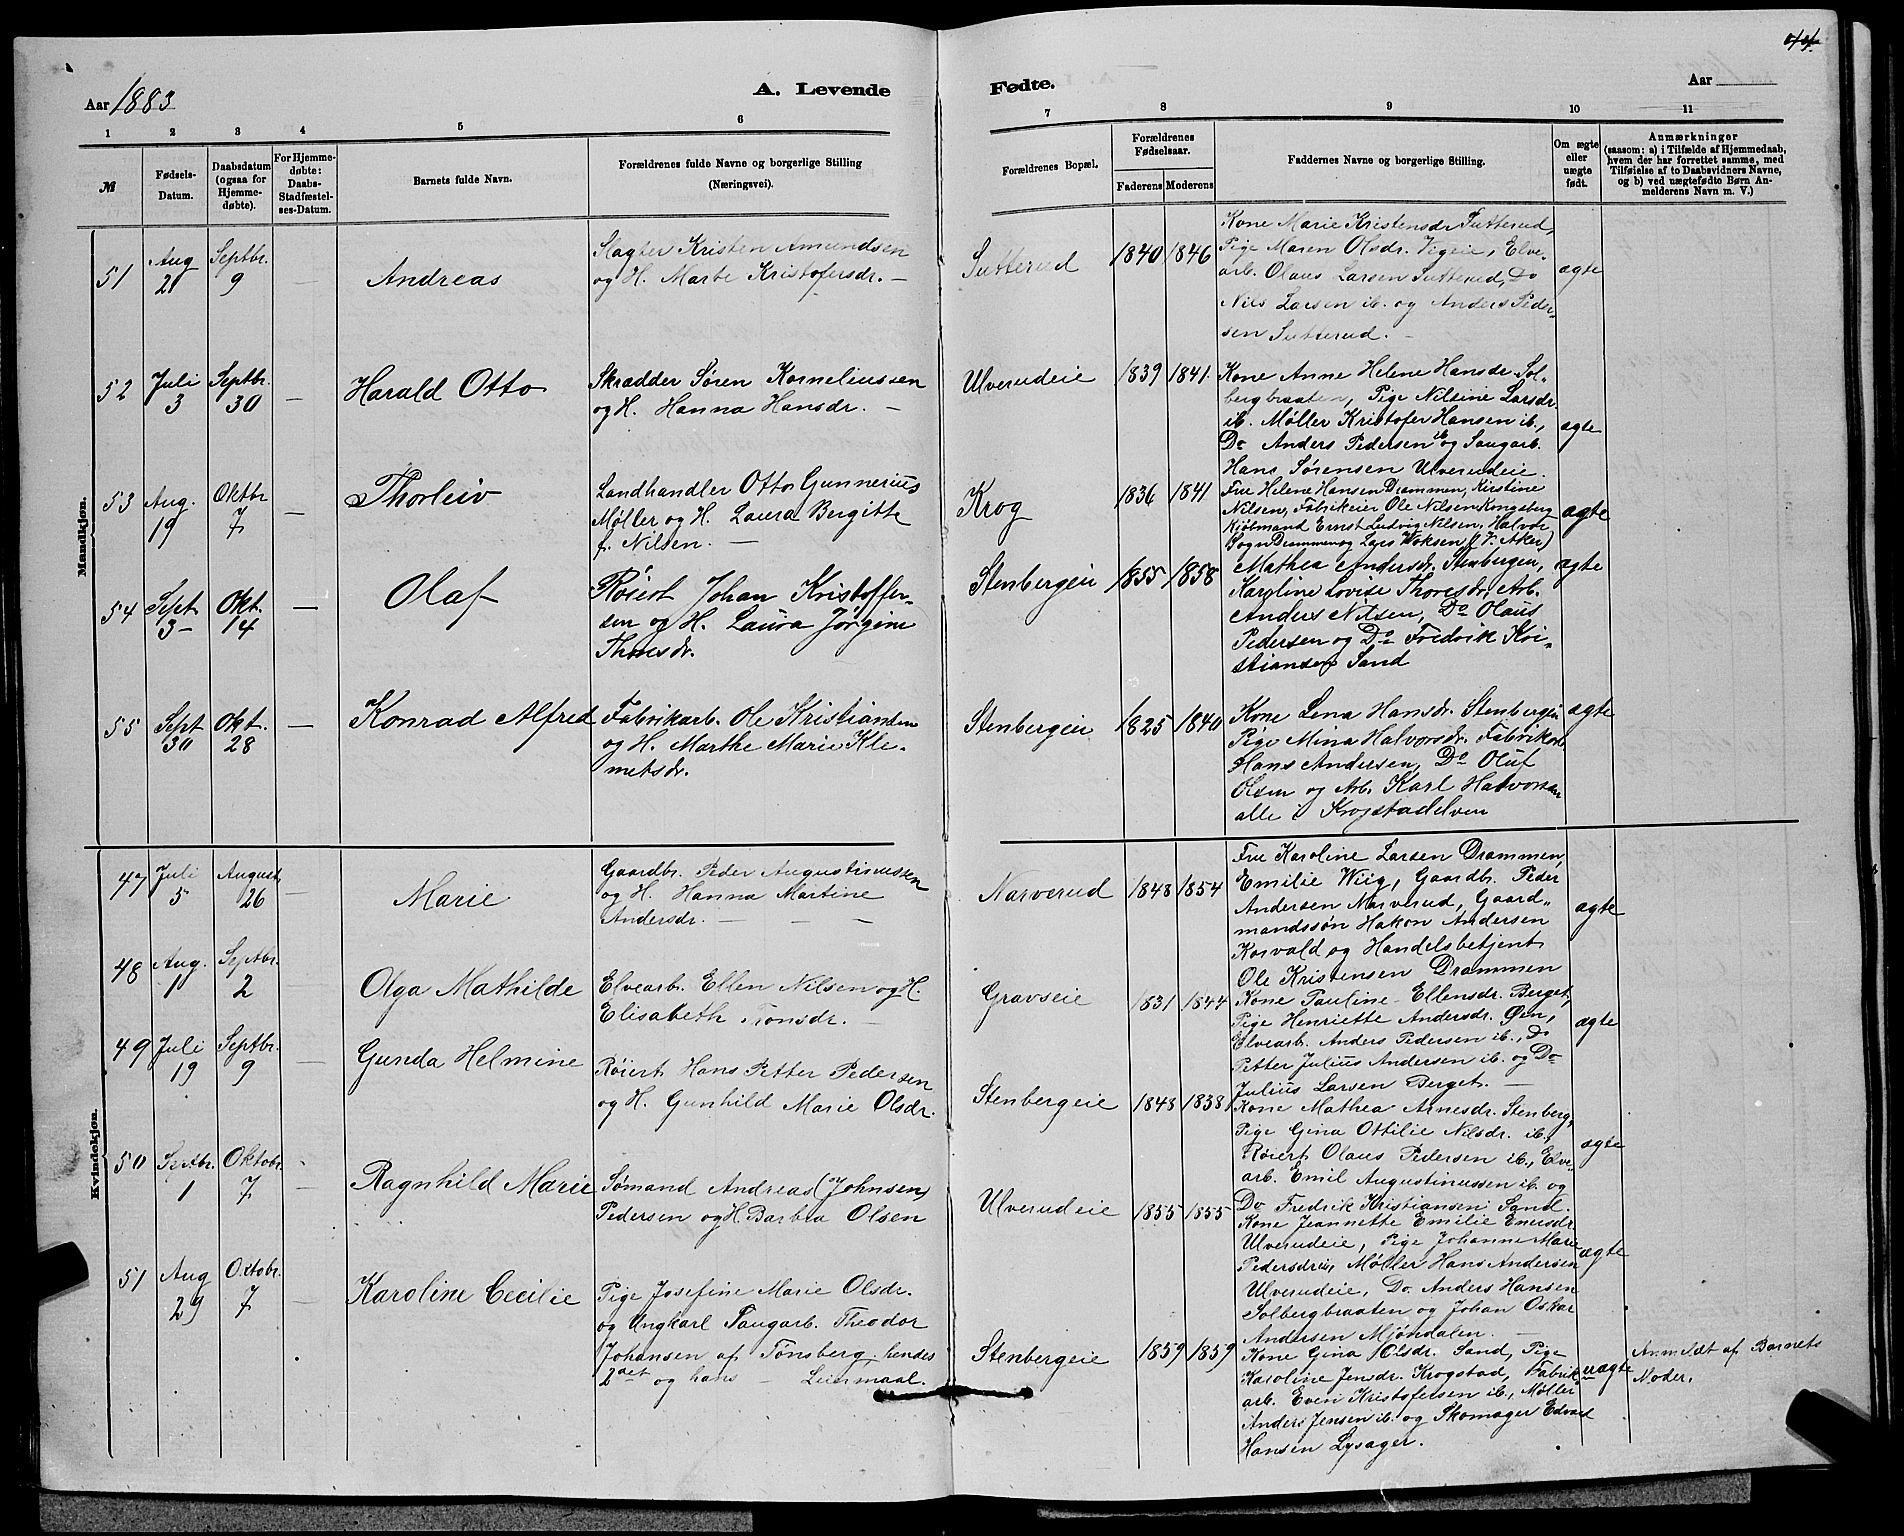 44.
Aar 1883
A. Levende
Fødte.
Aar
1
2
3
4
5
6
7
8
9
10
11
№
Fødsels-
Datum.
Daabsdatum
(ogsaa for
Hjemme-
døbte).
For Hjemme-
døbte:
Daabs-
Stadfæstel-
ses-Datum.
Barnets fulde Navn.
Forældrenes fulde Navne og borgerlige Stilling
(Næringsvei).
Forældrenes Bopæl.
Forældrenes
Fødselsaar.
Faderens
Moderens
Faddernes Navne og borgerlige Stilling.
Om ægte
eller
uægte
født.
Anmærkninger
(saasom: a) i Tilfælde af Hjemmedaab,
hvem der har forrettet samme, med
Tilføielse af to Daabsvidners Navne,
og b) ved uægtefødte Børn An-
melderens Navn m. V.)
Mandkjøn.
51
Aug
21
Septbr.
9
—
Andreas
Slagter Kristen Amundsen
og H. Marte Kristofersdr. —
Sutterud
1840
1846
Kone Marie Kristensdr Sutterud,
Pige Maren Olsdr. Vigeie, Elve-
arb. Olaus Larsen Sutterud, Do
Nils Larsen ib. og Anders Peder-
sen Sutterud. —
ægte
52
Juli
3
Septbr.
30
—
Harald Otto
Skrædder Søren Korneliussen
og H. Hanna Hansdr. —
Ulverudeie
1839
1841.
Kone Anne Helene Hansdr Sol-
bergbraaten, Pige Nilsine Larsdr.
ib. Møller Kristofer Hansen ib.,
Do Anders Pedersen ib og Saugarb.
Hans Sørensen Ulverudeie.
ægte
53
Aug.
19
Oktbr
7
—
Thorleiv
Landhandler Otto Gunnerius
Møller og H. Laura Bergitte
f. Nilsen. —
Krog
1836
1841
Fru Helene Hansen Drammen, Kirstine
Nilsen, Fabrikeier Ole Nilsen Kongsberg
Kjølmand Ernst Ludvig Nilsen, Halvor
Sogn Drammen og Lars Woksen (V. Aker)
ægte
54
Sept
3
Okt.
14
—
Olaf
Røiert Johan Kristoffer-
sen og H. Laura Jørgine
Thoresdr.
Stenbergeie
1855
1858
Mathea Andersdr. Stenbergeie,
Karoline Lovise Thoresdr, Arb.
Anders Nilsen, Do Olaus
Pedersen og Do Fredrik Kri-
stiansen Sand
ægte
55
Sept
30
Okt.
28
—
Konrad Alfred
Fabrikarb. Ole Kristiansen
og H. Marthe Marie Kle-
metsdr.
Stenbergeie
1825
1840
Kone Lena Hansdr. Stenbergeie
Pige Mina Halvorsdr. Fabrikarb.
Hans Andersen, Do Oluf
Olsen og Arb. Karl Halvorsen
alle i Krogstadelven
ægte
Kvindekjøn.
47
Juli
5
August
26
—
Marie
Gaardbr. Peder Augustinussen
og H. Hanna Martine
Andersdr. — — —
Narverud
1848
1854
Fru Karoline Larsen Drammen,
Emilie Wiig, Gaardbr. Peder
Andersen Narverud, Gaard-
mandssøn Hakon Andersen
Korvald og Handelsbetjent
Ole Kristensen Drammen
ægte
48
Aug.
1
Septbr.
2
—
Olga Mathilde
Elvearb. Ellen Nilsen og H.
Elisabeth Tronsdr. —
Gravseie
1831
1844
Kone Pauline Ellensdr. Berget,
Pige Henriette Andersdr. Øen,
Elvearb. Anders Pedersen ib., Do
Petter Julius Andersen ib. og Do
Julius Larsen Berget. —
ægte
49
Juli
19
Septbr.
9
—
Gunda Helmine
Røiert Hans Petter Pedersen
og H. Gunhild Marie Olsdr.
Stenbergeie
1848
1838
Kone Mathea Arnesdr. Stenberg,
Pige Gina Ottilie Nilsdr. ib.,
Røiert Olaus Pedersen ib., Elve-
arb. Emil Augustinussen ib. og
Do Fredrik Kristiansen Sand.
ægte
50
Septbr.
1
Oktobr.
7
—
Ragnhild Marie
Sømand Andreas (Johnsen)
Pedersen og H. Barbra Olsen
Ulverudeie
1855
1855
Kone Jeannette Emilie Enersdr.
Ulverudeie, Pige Johanne Marie
Pedersdr ib, Møller Hans Andersen
Ulverudeie, Do. Anders Hansen
Solbergbraaten og Johan Oskar
Andersen Mjøndalen. —
ægte
51
Aug
29
Oktobr.
7
—
Karoline Cecilie
Pige Josefine Marie Olsdr.
og Ungkarl Saugarb. Theodor
Johansen af Tønsberg, hendes
2det og hans — Leiermaal.
Stenbergeie
1859
1859
Kone Gina Olsdr. Sand, Pige
Karoline Jensdr. Krogstad, Fabrik-
arb. Even Kristofersen ib., Møller
Anders Jensen ib. og Skomager Edvard
Hansen Lysager.
uægte
Anmeldt af Barnets
Moder.